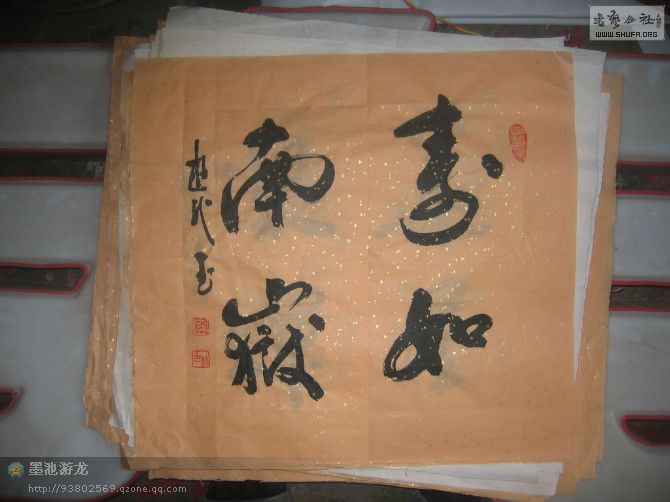 寿如
南嶽
書藝公社
WWW.SHUFA.ORG
墨池游龙
http://93802569.qzone.qq.com